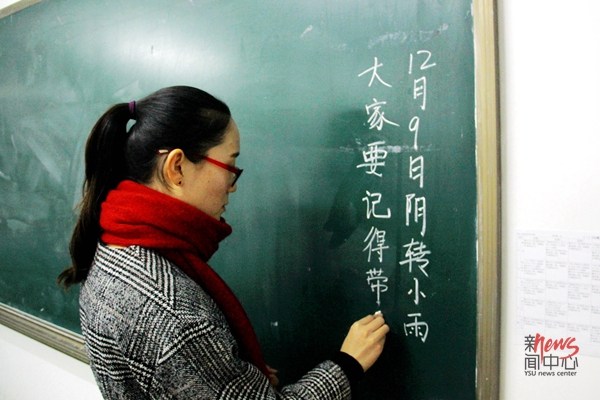 12月9日阴转小雨
大家要记得带
新闻中心
news
YSU news center